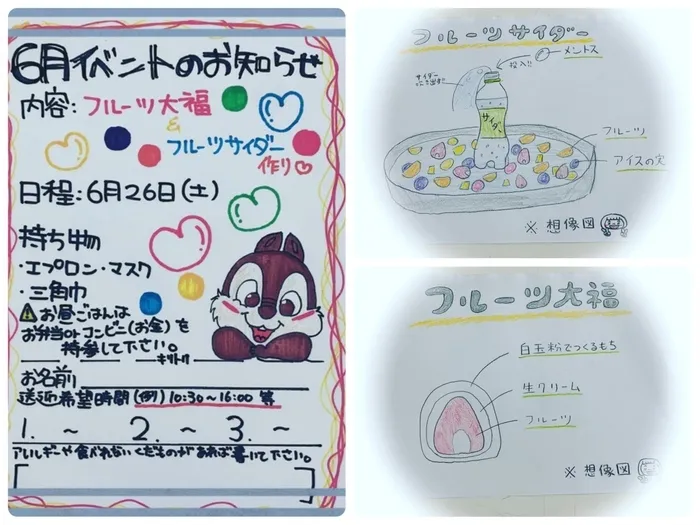 6月イベントのお知らせ
内容:フルーツ大福
&
フルーツサイダー
作り
日程:6月26日(土)
持ち物
・エプロン・マスク
・三角巾
お昼ごはんは
お弁当orコンビニ(お金)を
持参して下さい。
キリトリ
お名前
送迎希望時間(例)10:30~16:00 等
1. ~ 2. ~ 3. ~
アレルギーや食べれないくだものがあれば書いて下さい。
フルーツサイダー
投入!! メントス
サイダー
サイダ
フルーツ
アイスの実
※想像図
フルーツ大福
白玉粉でつくるもち
生クリーム
フルーツ
※想像図